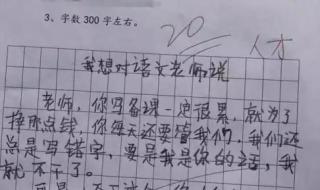 3、字数 300 字左右。
20
人才
我想对语文老师说
老师，你写备课一定很累，就为了
挣那点钱，你每天还要管我们，我们还
总是写错字，要是我是你的话，我
就不干了。